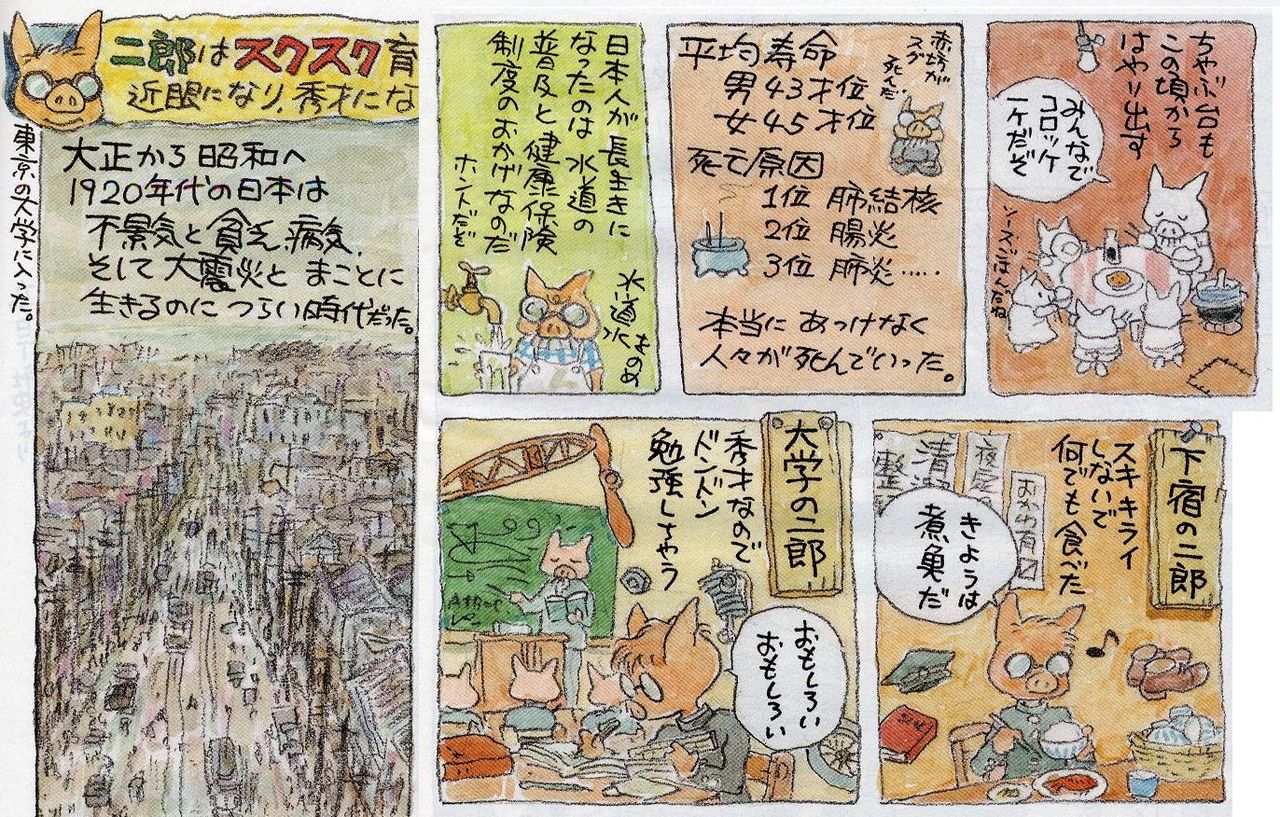 二郎はスクスク育
近眼になり、秀才にな
東京の大学に入った。
大正から昭和へ
1920年代の日本は
不景気と貧乏、病気、
そして大震災と まことに
生きるのに つらい時代だった。
日本人が長生きに
なったのは 水道の
普及と健康保険
制度のおかげなのだ
ホントだぞ
水道水
ものめ
平均寿命
男 43才位
女 45才位
赤坊が
スグ
死んだ
死亡原因
1位 肺結核
2位 腸炎
3位 肺炎・・・・・
本当に あっけなく
人々が 死んでいった。
ちゃぶ台も
この頃から
はやり出す
みんなで
コロッケ
一ケだぞ
ソースごはんだね
大学の二郎
秀才なので
ドンドン
勉強しちゃう
おもしろい
おもしろい
下宿の二郎
スキキライ
しないで
何でも食べた
きようは
煮魚だ
おかわ有
清
整